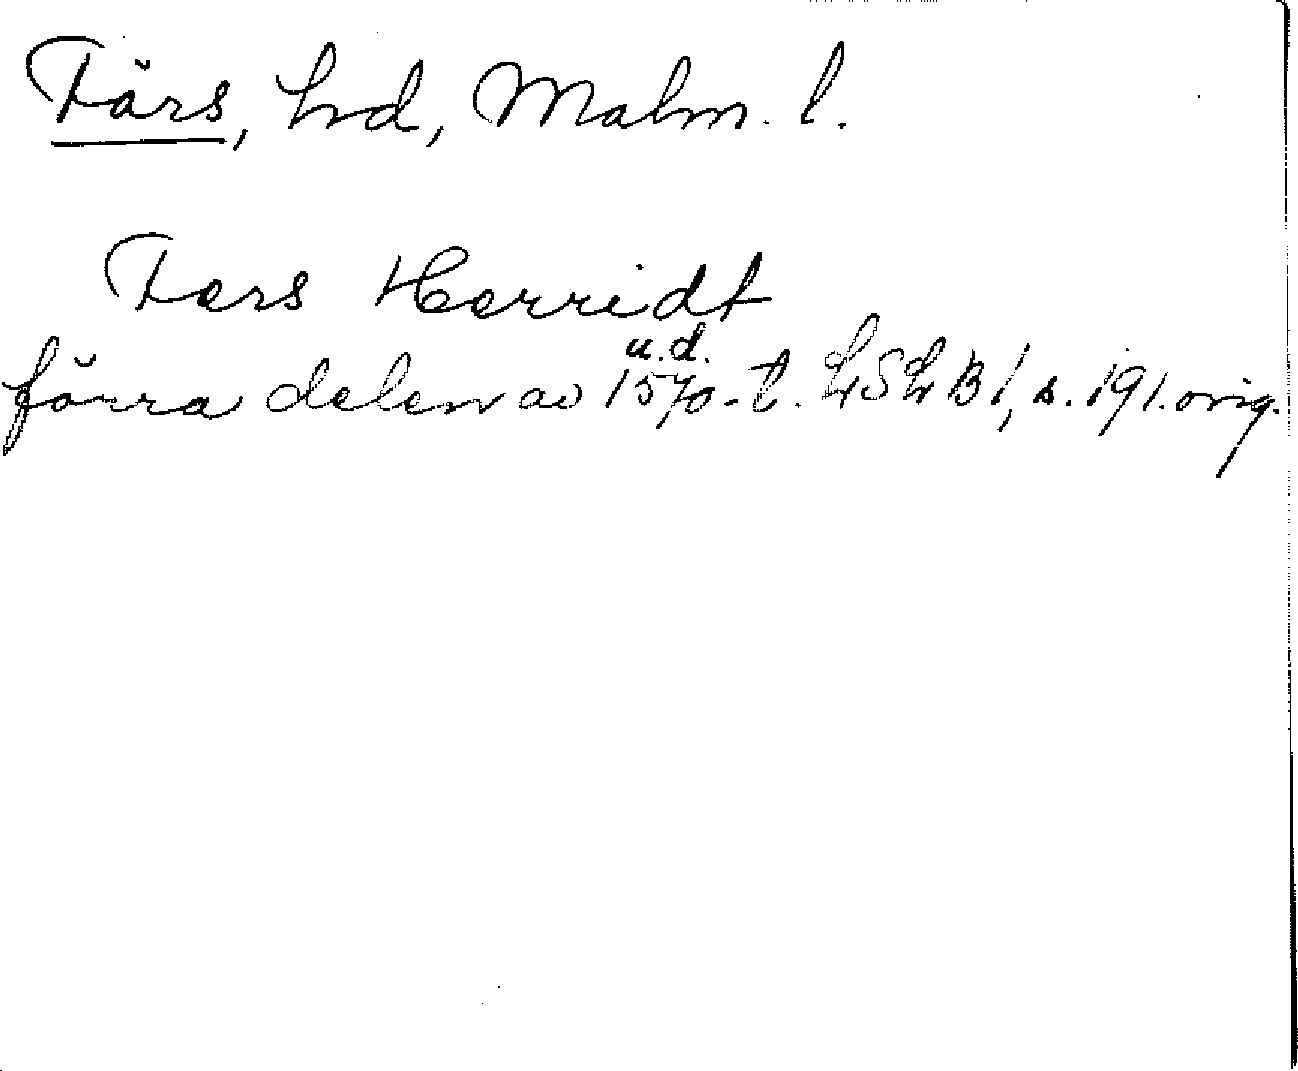 Färs, hd, Malm. l.
Fers Herridt
u.d.
förra delen av 1570-t. LSLB1, s. 191. orig.